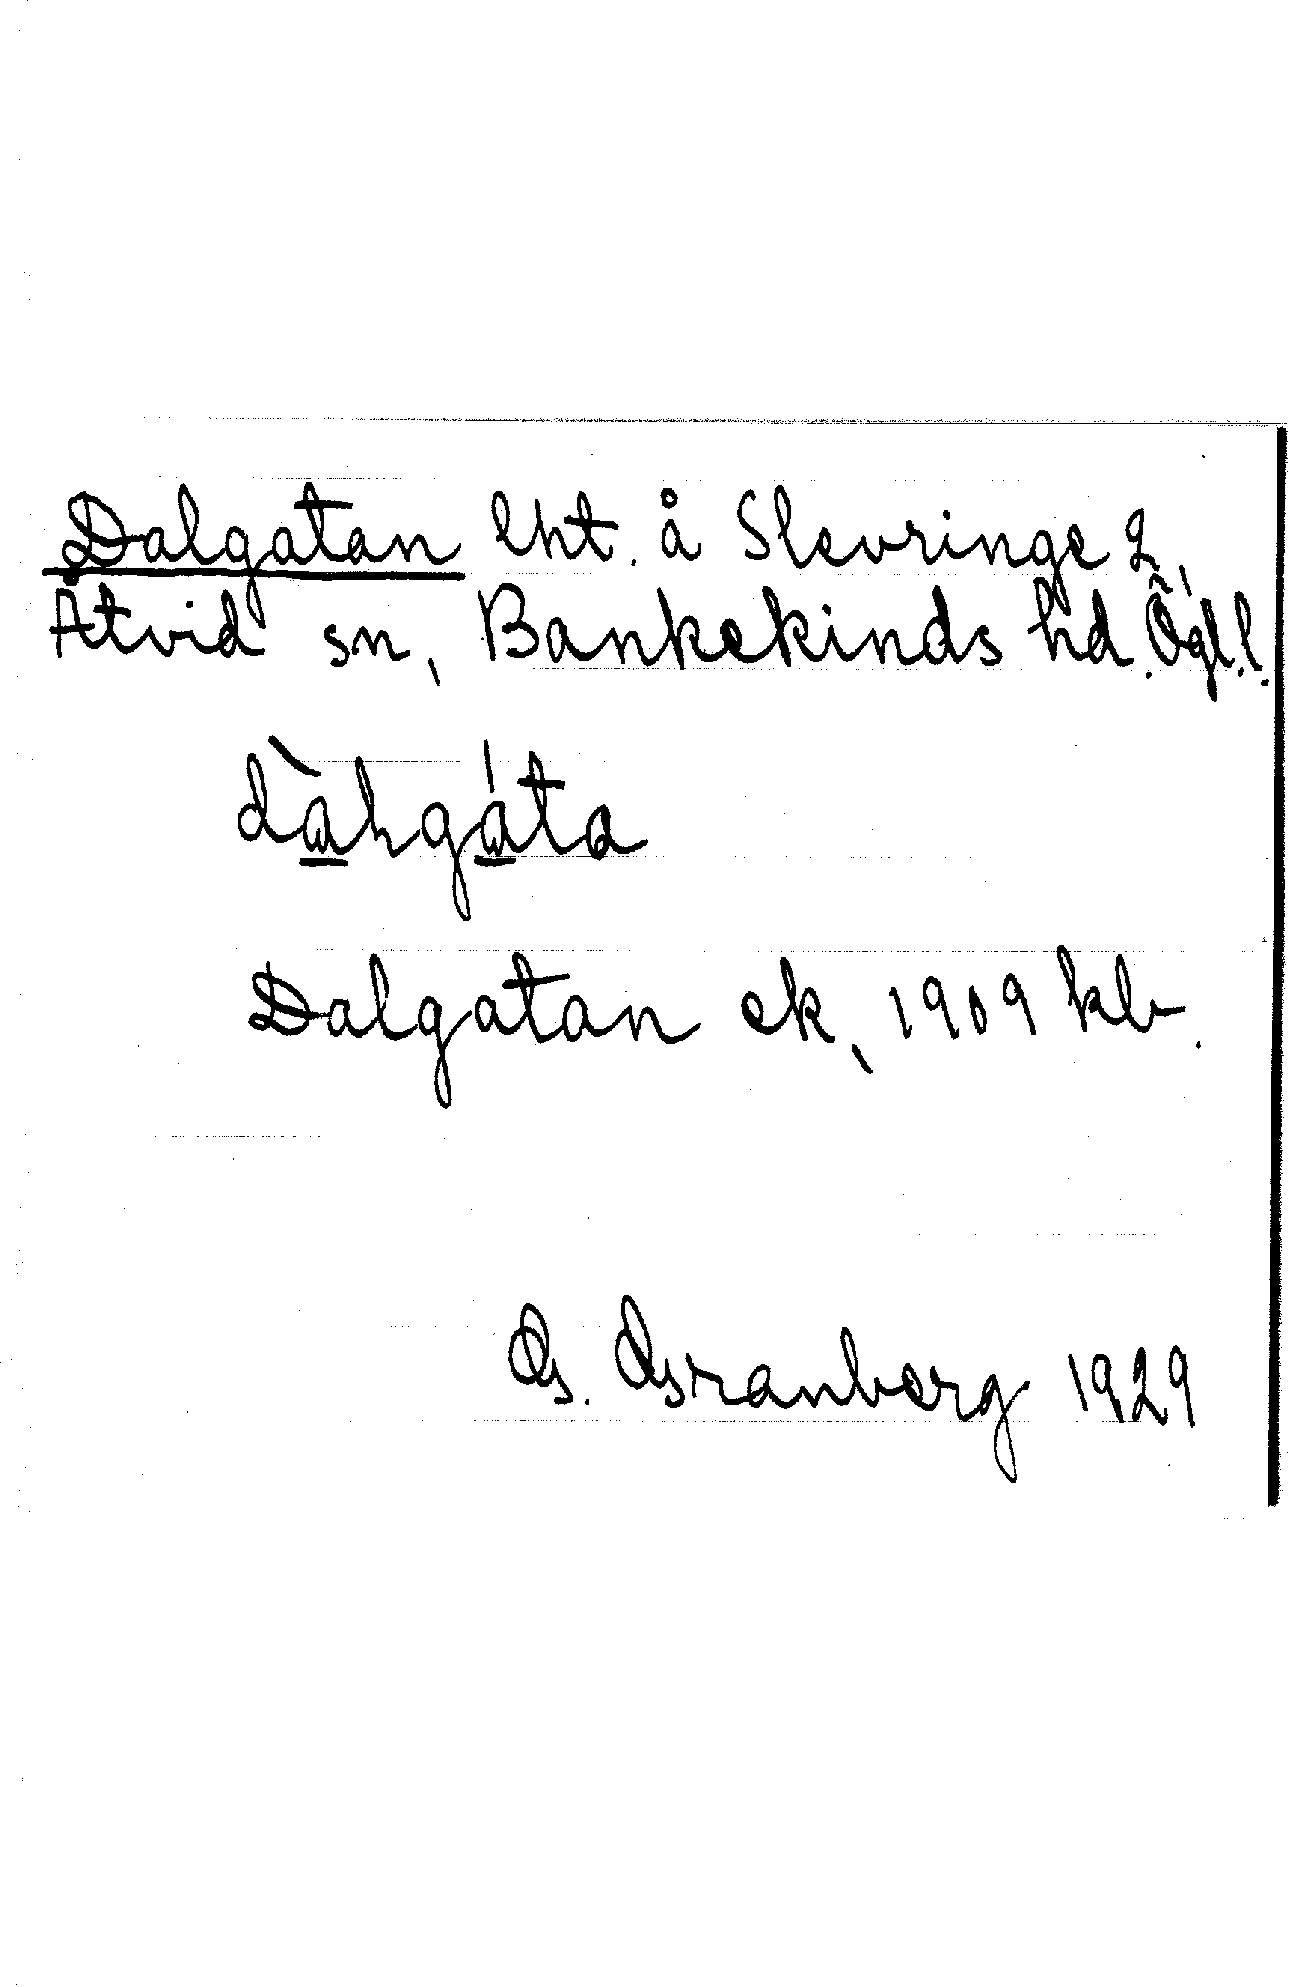 Dalgatan lht. å Slevringe 2,
Åtvid sn, Bankekinds hd. Ögl.l.
dàhgáta
Dalgatan ek, 1909 kb.
G. Granberg 1929